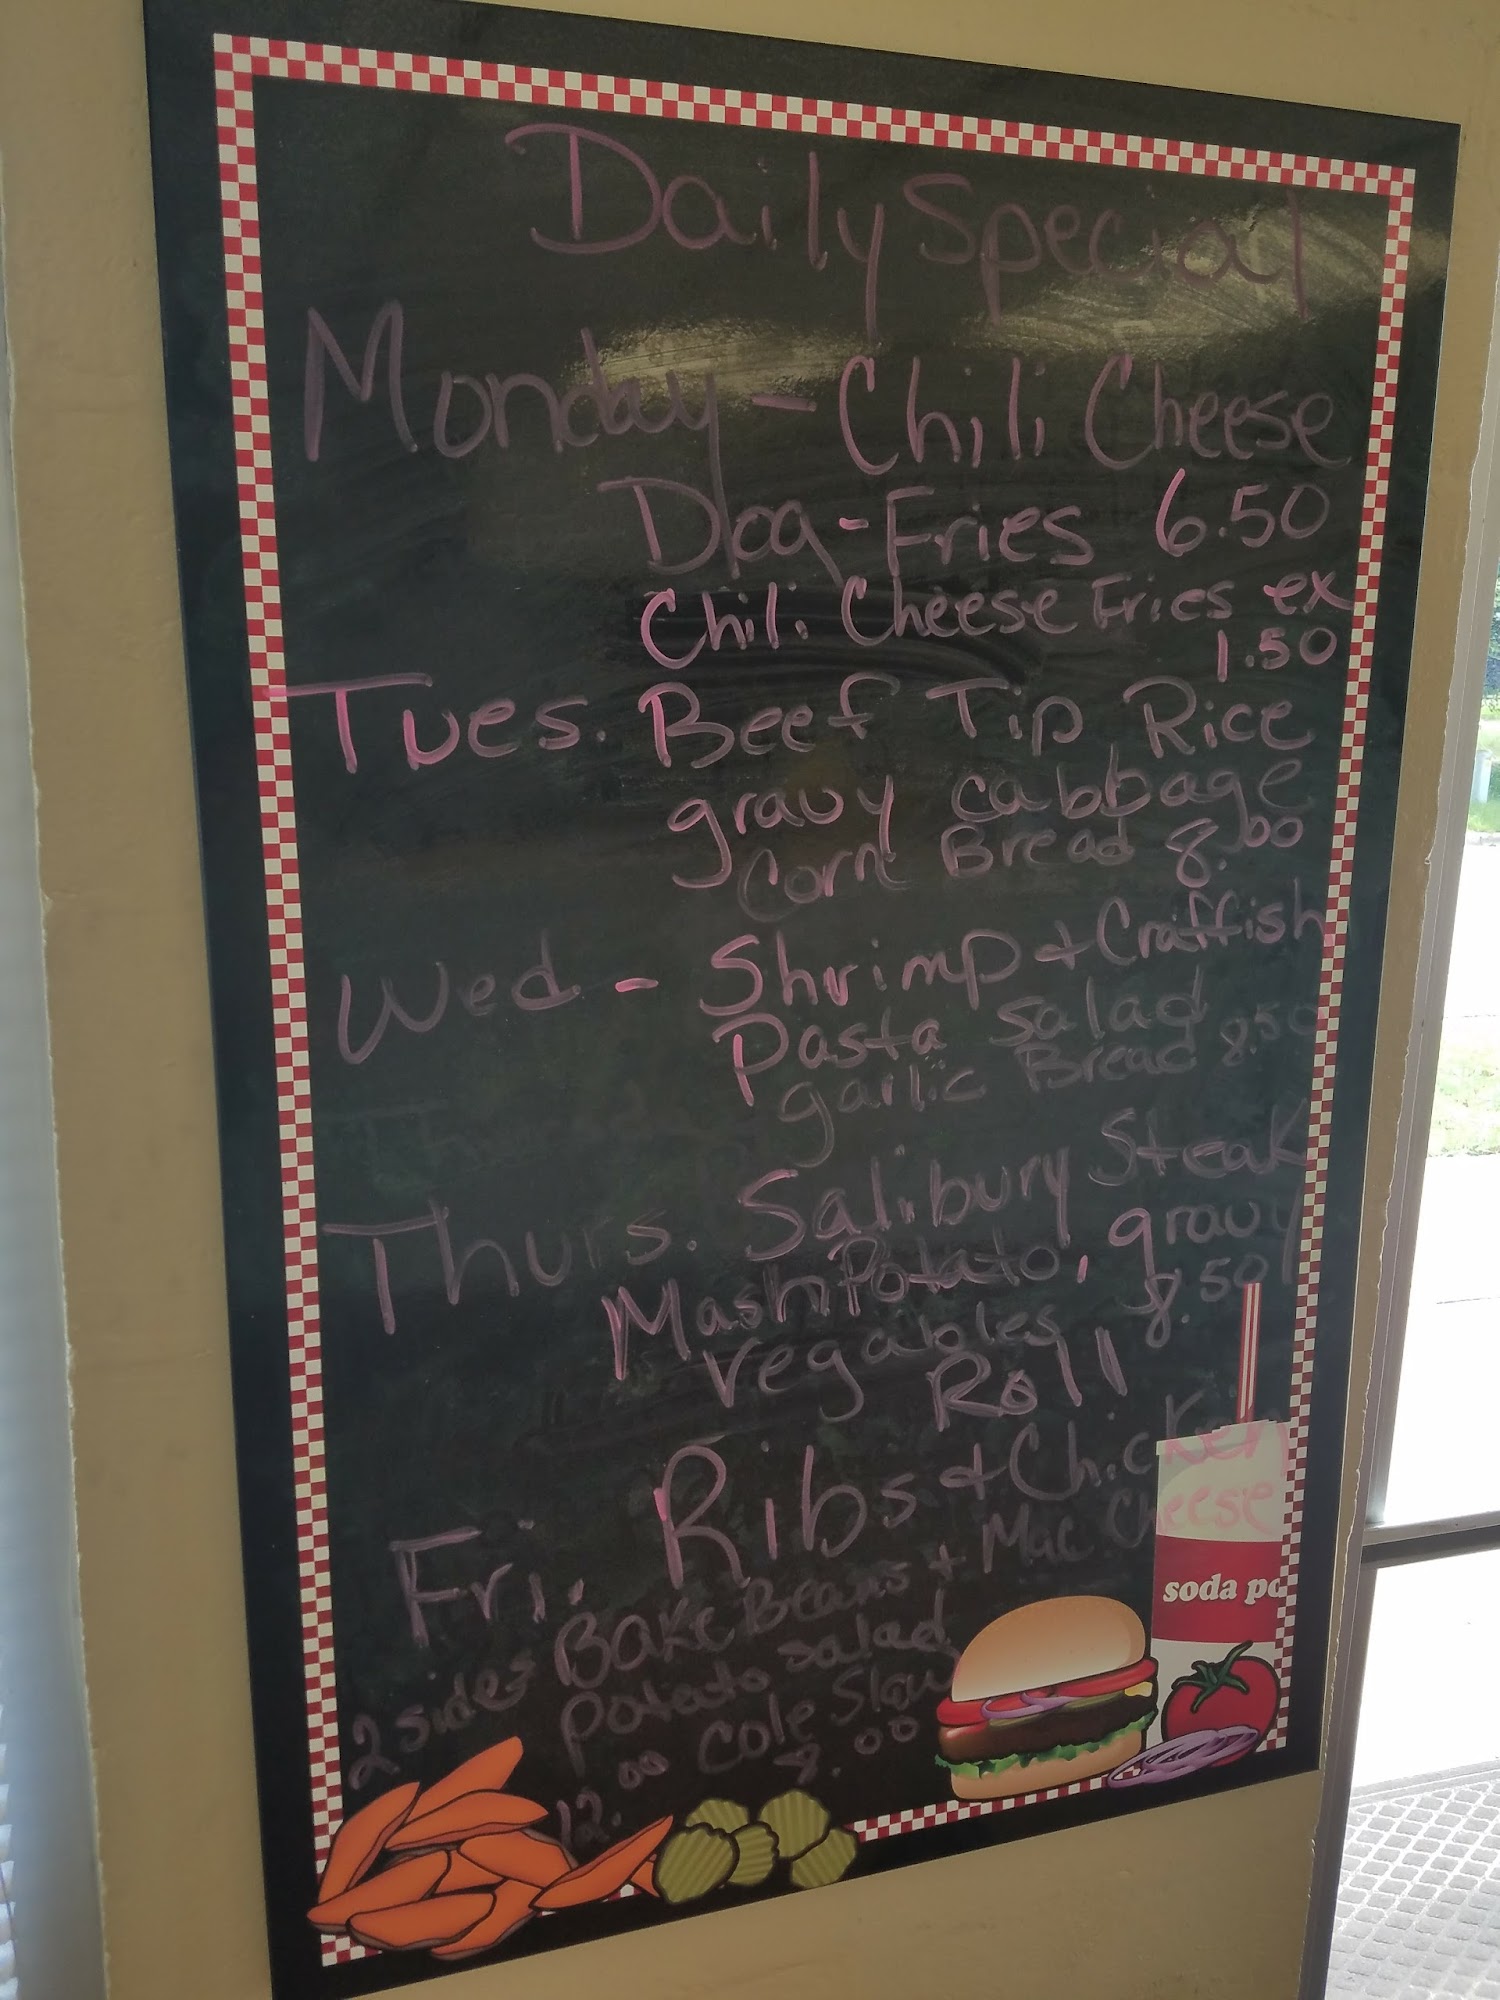 Daily Special
Monday - Chili Cheese
Dog - Fries 6.50
Chili Cheese Fries ex
1.50
Tues. Beef Tip Rice
gravy cabbage
Corn Bread 8.00
Wed - Shrimp + Craffish
Pasta Salad
garlic Bread 8.50
Thurs. Salibury Steak
Mash Potato, gravy
vegables 8.50
Roll
Fri. Ribs + Chicken
2 sides Bake Beans + Mac Cheese
Potato salad
12.00 Cole Slaw
8.00
soda po